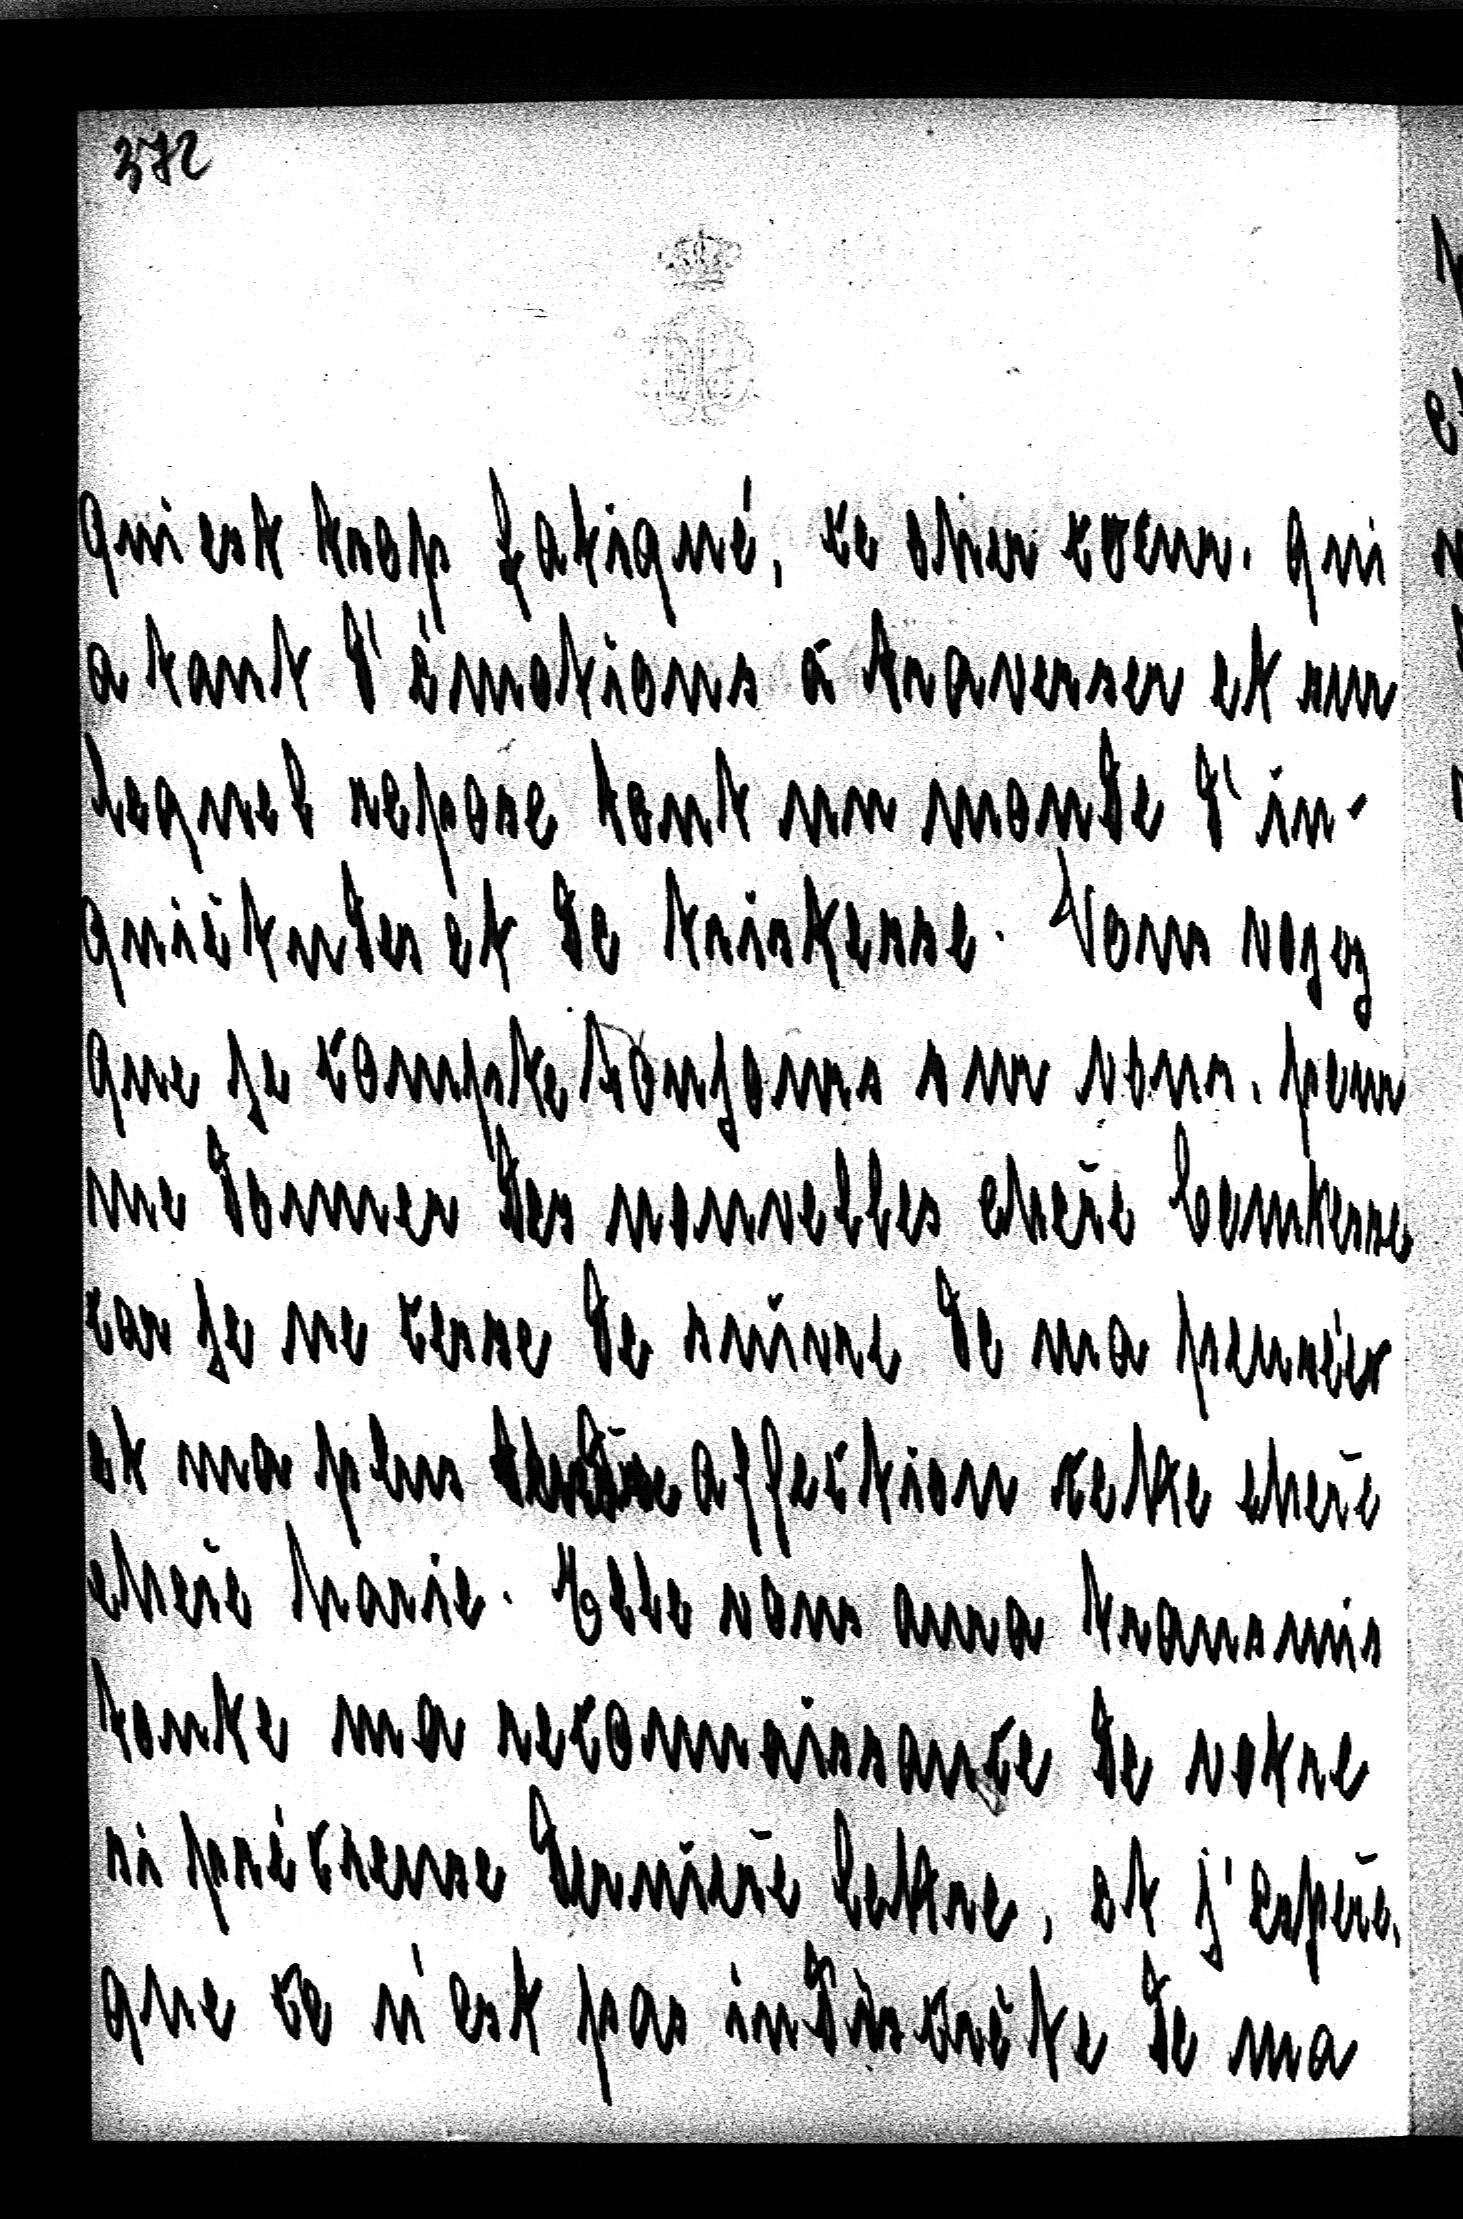 372
qui est trop fatigué, ce cher coeur. qui
a tant d'émotions à traverser et sur
lequel repose tout un monde d'in-
quiétudes et de tristesse. Vous voyez
que je compte toujours sur vous. pour
me donner des nouvelles chère Comtesse
car je ne cesse de suivre de ma pensées
et ma plus tendre affection cette chère
chère Marie. Elle vous aura transmis
toute ma reconnaissance de votre
si précieuse dernière lettre, et j'espère.
que ce n'est pas indiscrète de ma